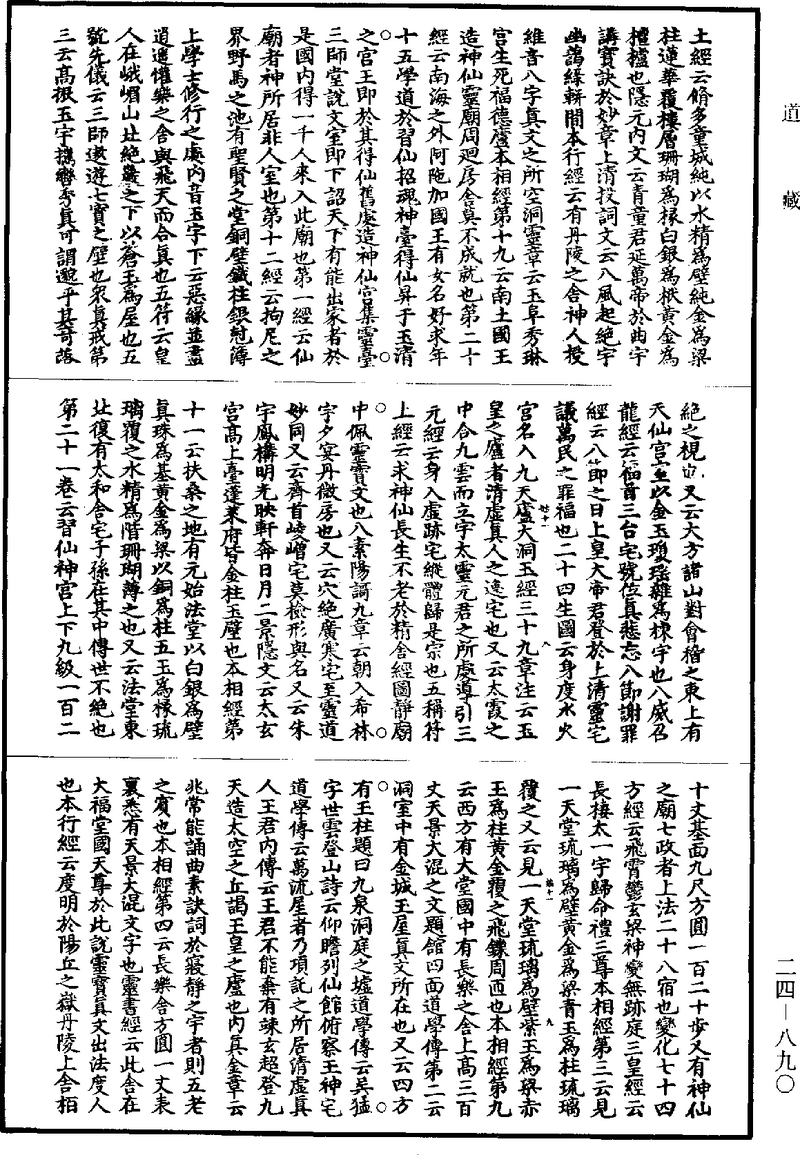 道藏
土經云脩多童城純以水精爲壁純金爲梁
柱蓮華覆樓層珊瑚爲椽白銀爲栿黃金爲
檀櫨也隱元內文云青童君延萬帝於曲宇
講寶訣於妙章上清投詞文云八風起絕宇
幽藹緣軿間本行經云有丹陵之舍神人授
維音八字真文之所空洞靈章云玉阜秀琳
宮生死福德廬本相經第十九云南土國王
造神仙靈廟周迴房舍莫不成就也第二十
經云南海之外阿陁加國王有女名好求年
十五學道於習仙招魂神臺得仙昇于玉清
之宮王即於其得仙舊處造神仙宮集靈臺
三師堂說文室即下詔天下有能出家者於
是國內得一千人來入此廟也第一經云仙
廟者神所居非人室也第十二經云拘尼之
界野馬之池有聖賢之堂銅壁鐵柱銀尅簿
上學士修行之處內音玉字下云惡緣並盡
逍遙懽樂之舍與飛天而合真也五符云皇
人在峨嵋山北絕巖之下以蒼玉爲屋也五
號先儀云三師遨遊七寶之壁也衆真戒第
三云高振玉宇攜轡秀真可謂邈乎其奇落
絕之視也又云大方諸山對會稽之東上有
天仙宮室以金玉瓊瑤雜爲棟宇也八威召
龍經云徊首三台宅號位真慈忘八節謝罪
經云八節之日上皇大帝君登於上清靈宅
議萬民之罪福也二十四生圖云身度水火
宮名入九天廬大洞玉經三十九章注云玉
皇之廬者清虛真人之逸宅也又云太霞之
中合九雲而立宇太靈元君之所處導引三
元經云身入虛跡宅縱體歸是宗也五稱符
上經云求神仙長生不老於精舍經圖靜廟
中佩靈寶文也八素陽謌九章云朝入希林
宇夕宴丹微房也又云穴絕廣寒宅至靈道
妙同又云齊首崚嶒宅莫檢形與名又云朱
宇鳳構明光映軒奔日月二景隱文云太玄
宮高上臺蓬萊府皆金柱玉壁也本相經第
十一云扶桑之地有元始法堂以白銀爲壁
真珠爲基黃金爲梁以銅爲柱五玉爲椽琉
璃覆之水精爲階珊瑚薄之也又云法堂東
北復有太和舍宅子孫在其中傳世不絕也
第二十一卷云習仙神宮上下九級一百二
十丈基面九尺方圓一百二十步又有神仙
之廟七政者上法二十八宿也變化七十四
方經云飛霄鬱玄梁神變無跡庭三皇經云
長棲太一宇歸命禮三尊本相經第三云見
一天堂琉璃爲壁黃金爲梁青玉爲柱琉璃
覆之又云見一天堂琉璃爲壁紫玉爲梁赤
玉爲柱黃金覆之飛鏤周匝也本相經第九
云西方有大堂國中有長樂之舍上高三百
丈天景大混之文題館四面道學傳第二云
洞室中有金城玉屋真文所在也又云四方
有玉柱題曰九泉洞庭之墟道學傳云吳猛
字世雲登山詩云仰瞻列仙館俯察王神宅
道學傳云萬流屋者乃項託之所居清虛真
人王君內傳云王君不能棄有竦玄超登九
天造太空之丘謁玉皇之廬也內真金章云
兆常能誦曲素訣詞於寢静之宇者則五老
之賓也本相經第四云長樂舍方圓一丈表
裏悉有天景大混文字也靈書經云此舍在
大福堂國天尊於此說靈寶真文出法度人
也本行經云度明於陽丘之嶽丹陵上舍栢
二四—八九〇